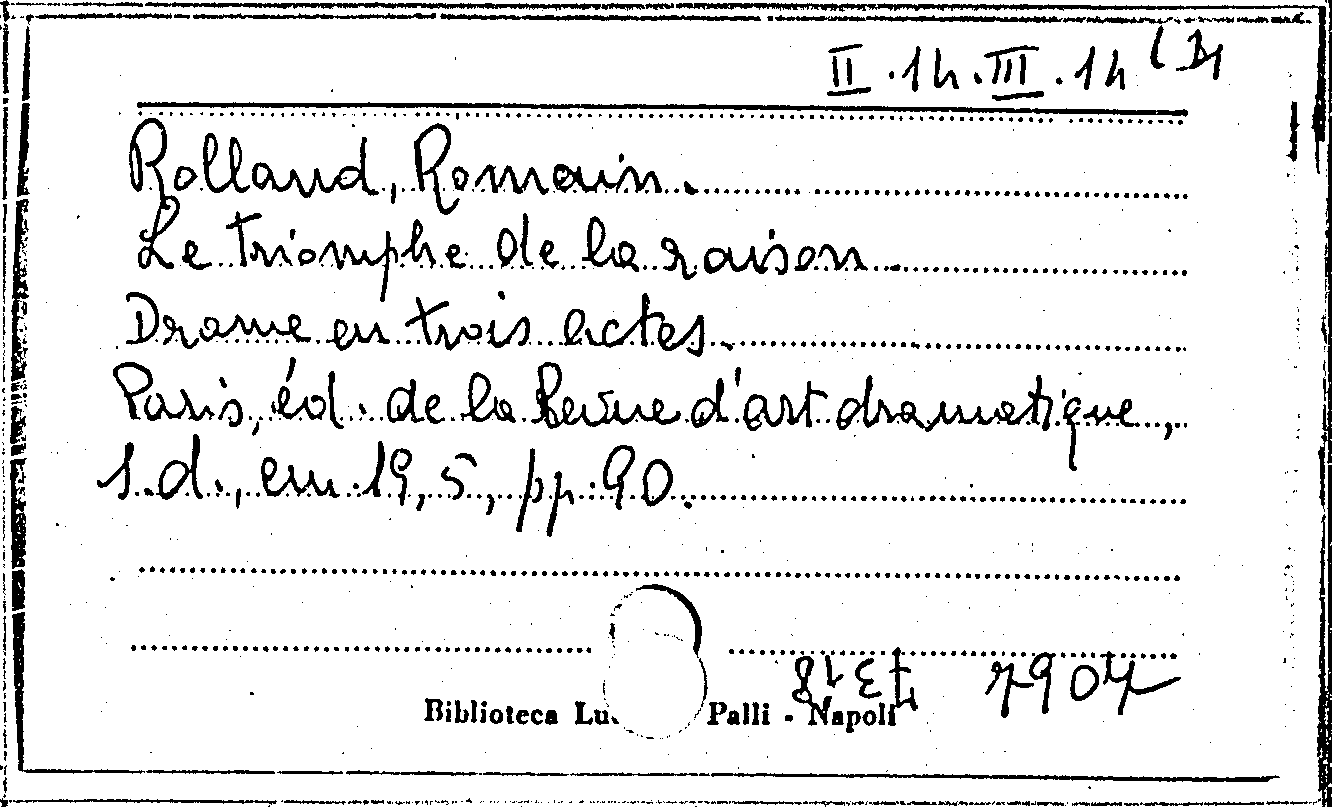 II.14.III.14 (3)
Rolland, Romain.
Le triomphe de la raison.
Drame en trois actes.
Paris, éd. de la Revue d'art dramatique,
s.d., cm. 19,5, pp. 90.
7907
Biblioteca Lu Palli - Napoli